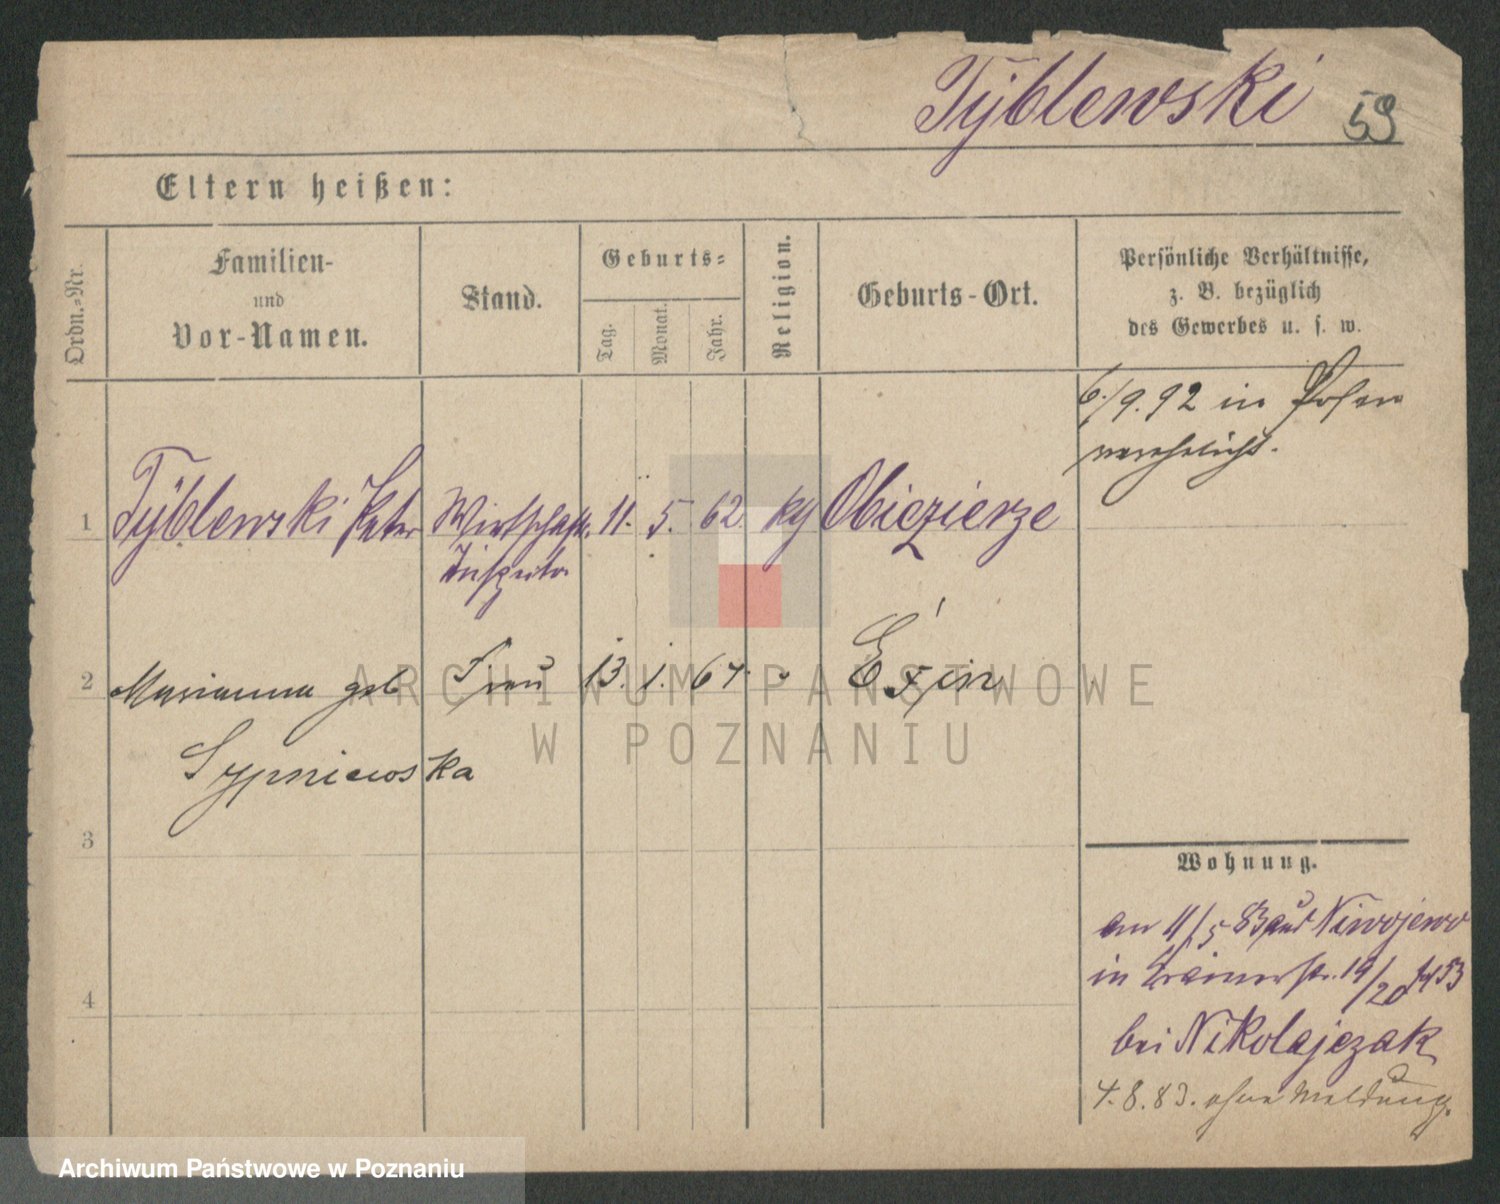 Tyblewski 59
Eltern heißen:
Ordn.-Nr.
Familien-
und
Vor-Namen.
Stand.
Geburts-
Tag.
Monat.
Jahr.
Religion.
Geburts-Ort.
Persönliche Verhältnisse,
z. B. bezüglich
des Gewerbes u. s. w.
6./9.92 in Posen
verehelicht.
1 Tyblewski Peter Wirtschafts. 11. 5. 62 kg Obiezierze
Inspector
2 Marianna geb Frau 13. 1. 67. " Exin
Sypniewska
3
4
Wohnung.
am 11/5 83 aus Niwojewo
in 19/20
bei Nikolajczak
4.8.83. ohne Meldung.
ARCHIWUM PAŃSTWOWE
W POZNANIU
Archiwum Państwowe w Poznaniu